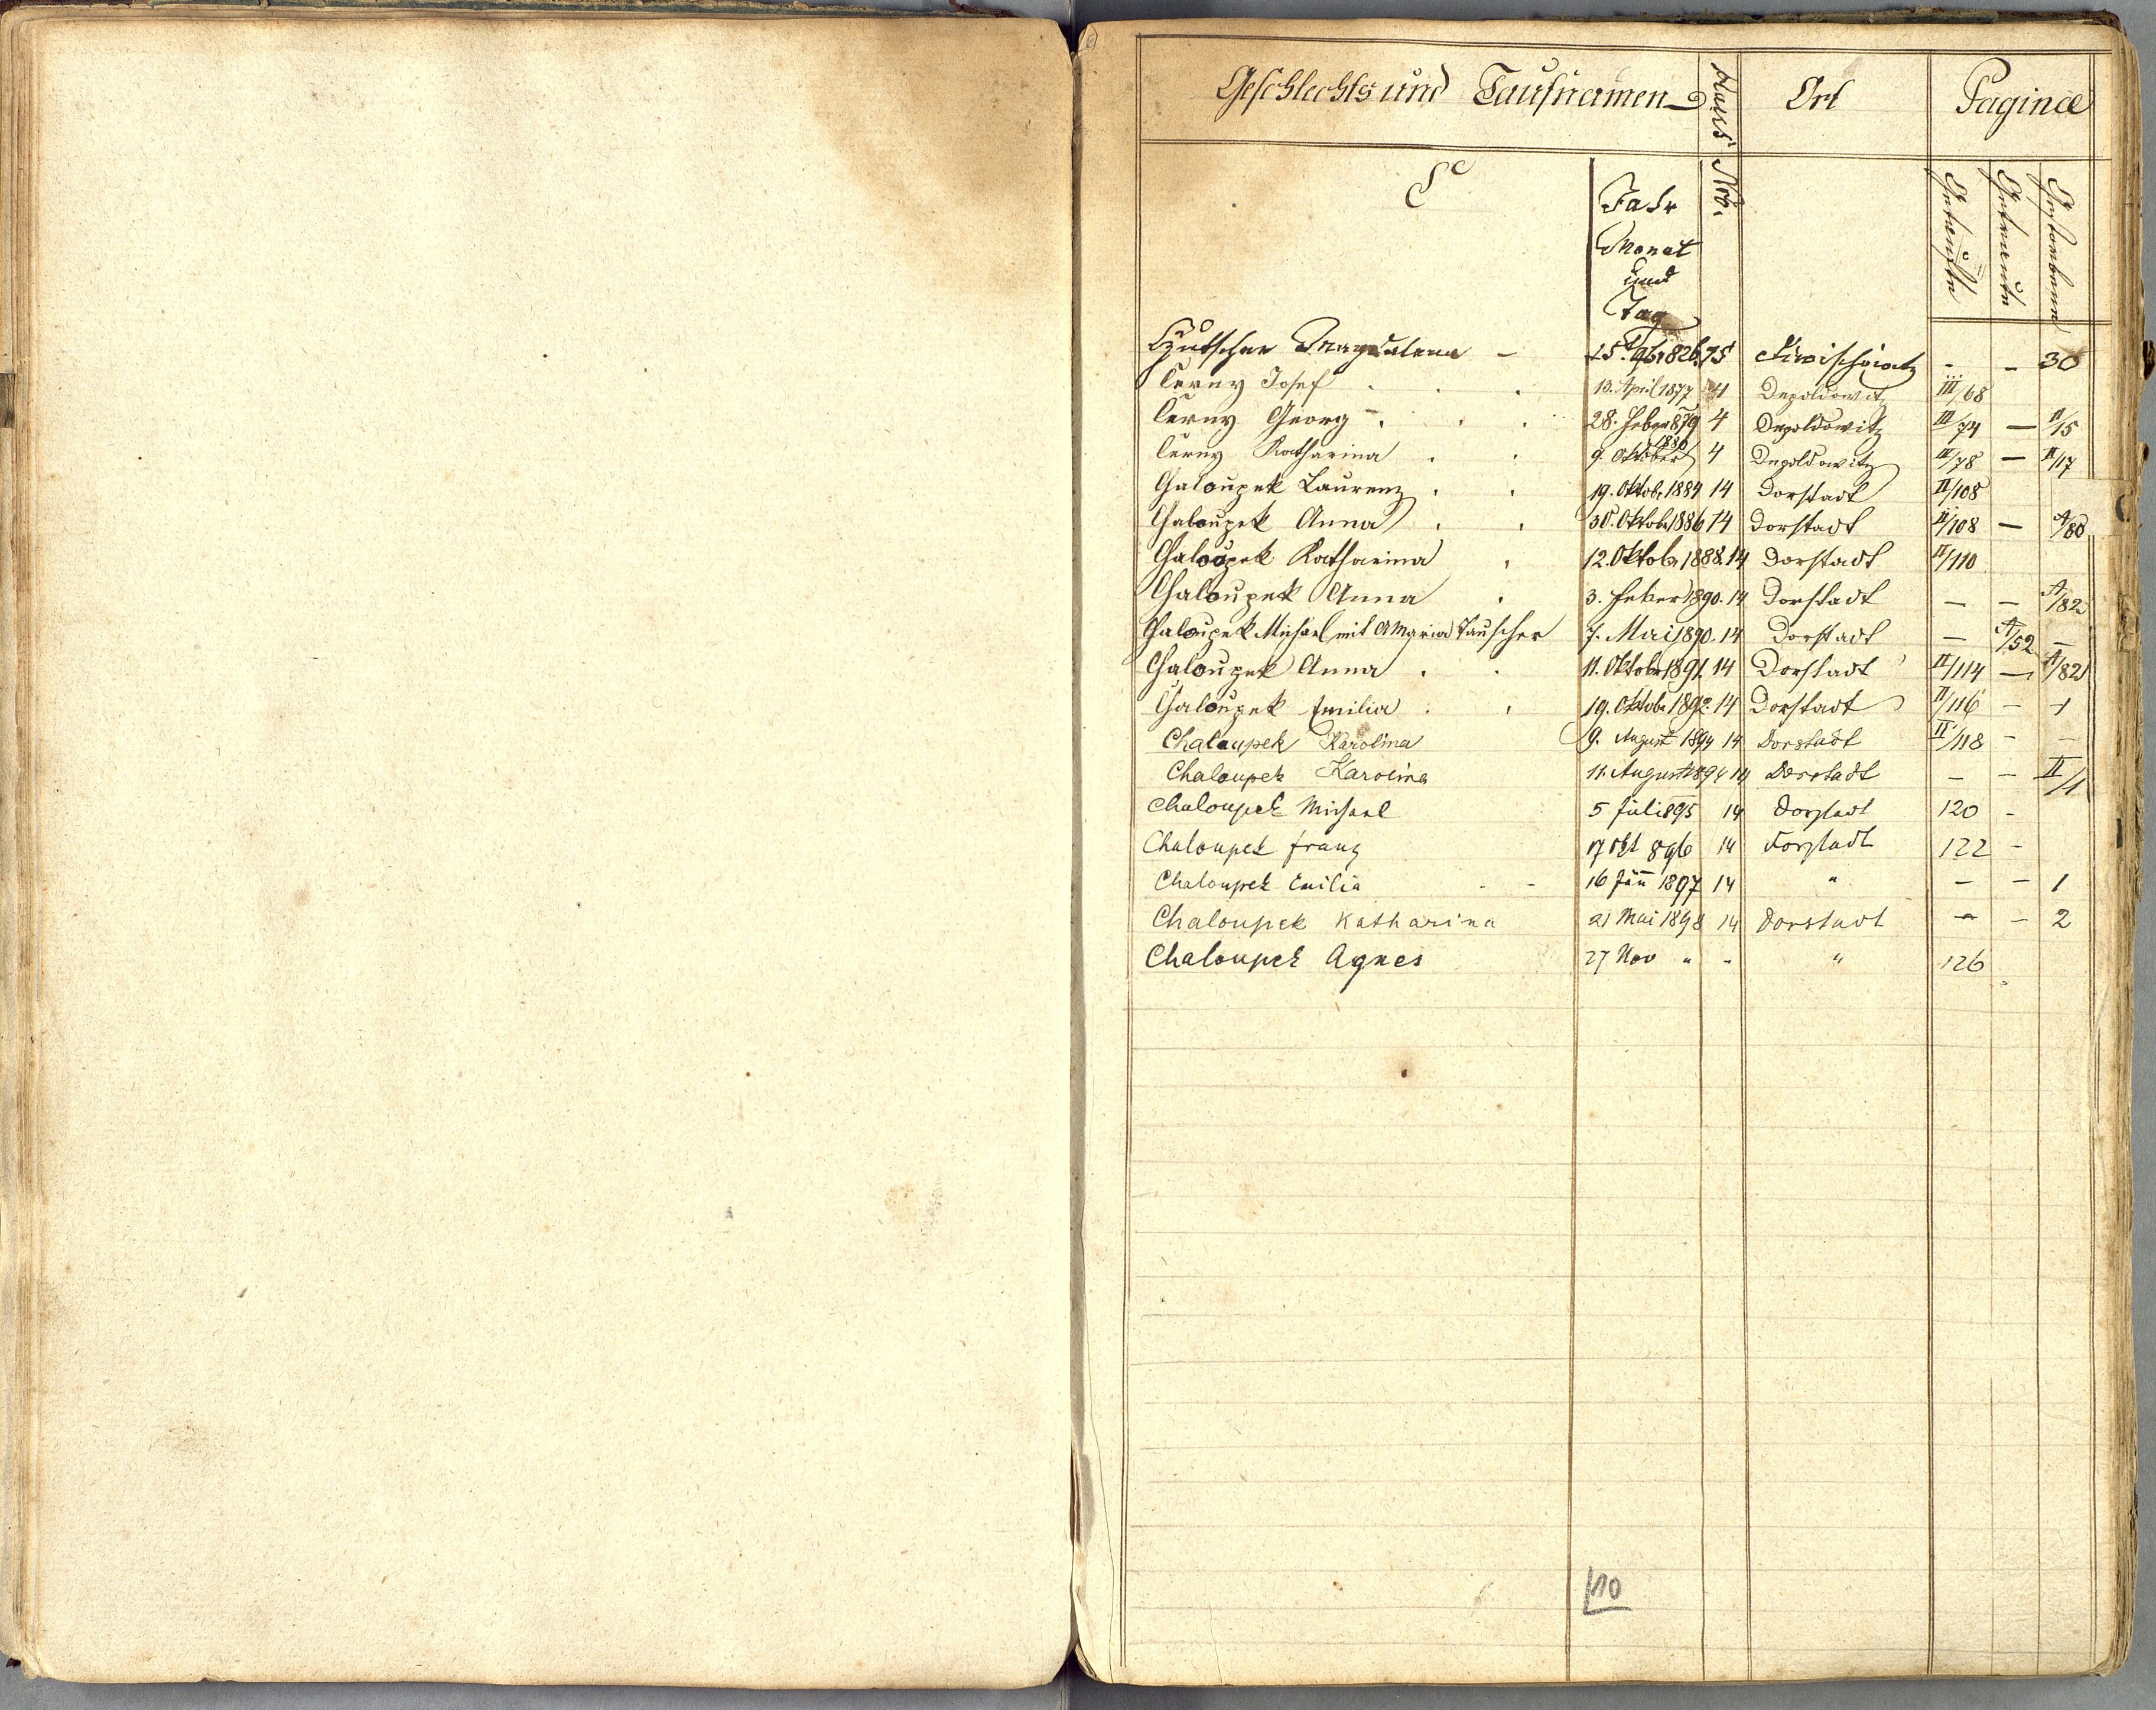 Geschlechts und Taufnamen Haus Nro. Ort Paginae
C Jahr Monat und Tag Getaufte Getraute Gestorbene
Magdalena - 15. 9br 826. 75 - - 30
Cerny Josef 13. April 1877 4 Depoldowitz III/68
Cerny Georg 28. Feber 879 4 Depoldowitz III/74 — II/15
Cerny Katharina 9. Oktober 1880 4 Depoldowitz III/78 — II/17
Chaloupek Laurenz 19. Oktob. 1884 14 Dorstadt II/108
Chaloupek Anna 30. Oktob. 1886 14 Dorstadt II/108 — A/80
Chaloupek Katharina 12. Oktob. 1888. 14 Dorstadt II/110
Chaloupek Anna 3. Feber 1890. 14 Dorstadt — — A/82
Chaloupek Michael mit A Maria Tauscher 7. Mai 1890. 14 Dorstadt — A/52 —
Chaloupek Anna 11. Oktobr 1891. 14 Dorstadt II/114 — A/82
Chaloupek Emilia 19. Oktob. 1892. 14 Dorstadt II/116 - 1
Chaloupek Karolina 9. August 1894 14 Dorstadt II/118 - -
Chaloupek Karolina 11. August 894 14 Dorstadt — — II/1
Chaloupek Michael 5 Juli 895 14 Dorstadt 120 -
Chaloupek Franz 17 Okt 896 14 Dorstadt 122 -
Chaloupek Emilia - - 16 Jän 1897 14 " — — 1
Chaloupek Katharina 21 Mai 1898 14 Dorstadt — — 2
Chaloupek Agnes 27 Nov " - " 126
10